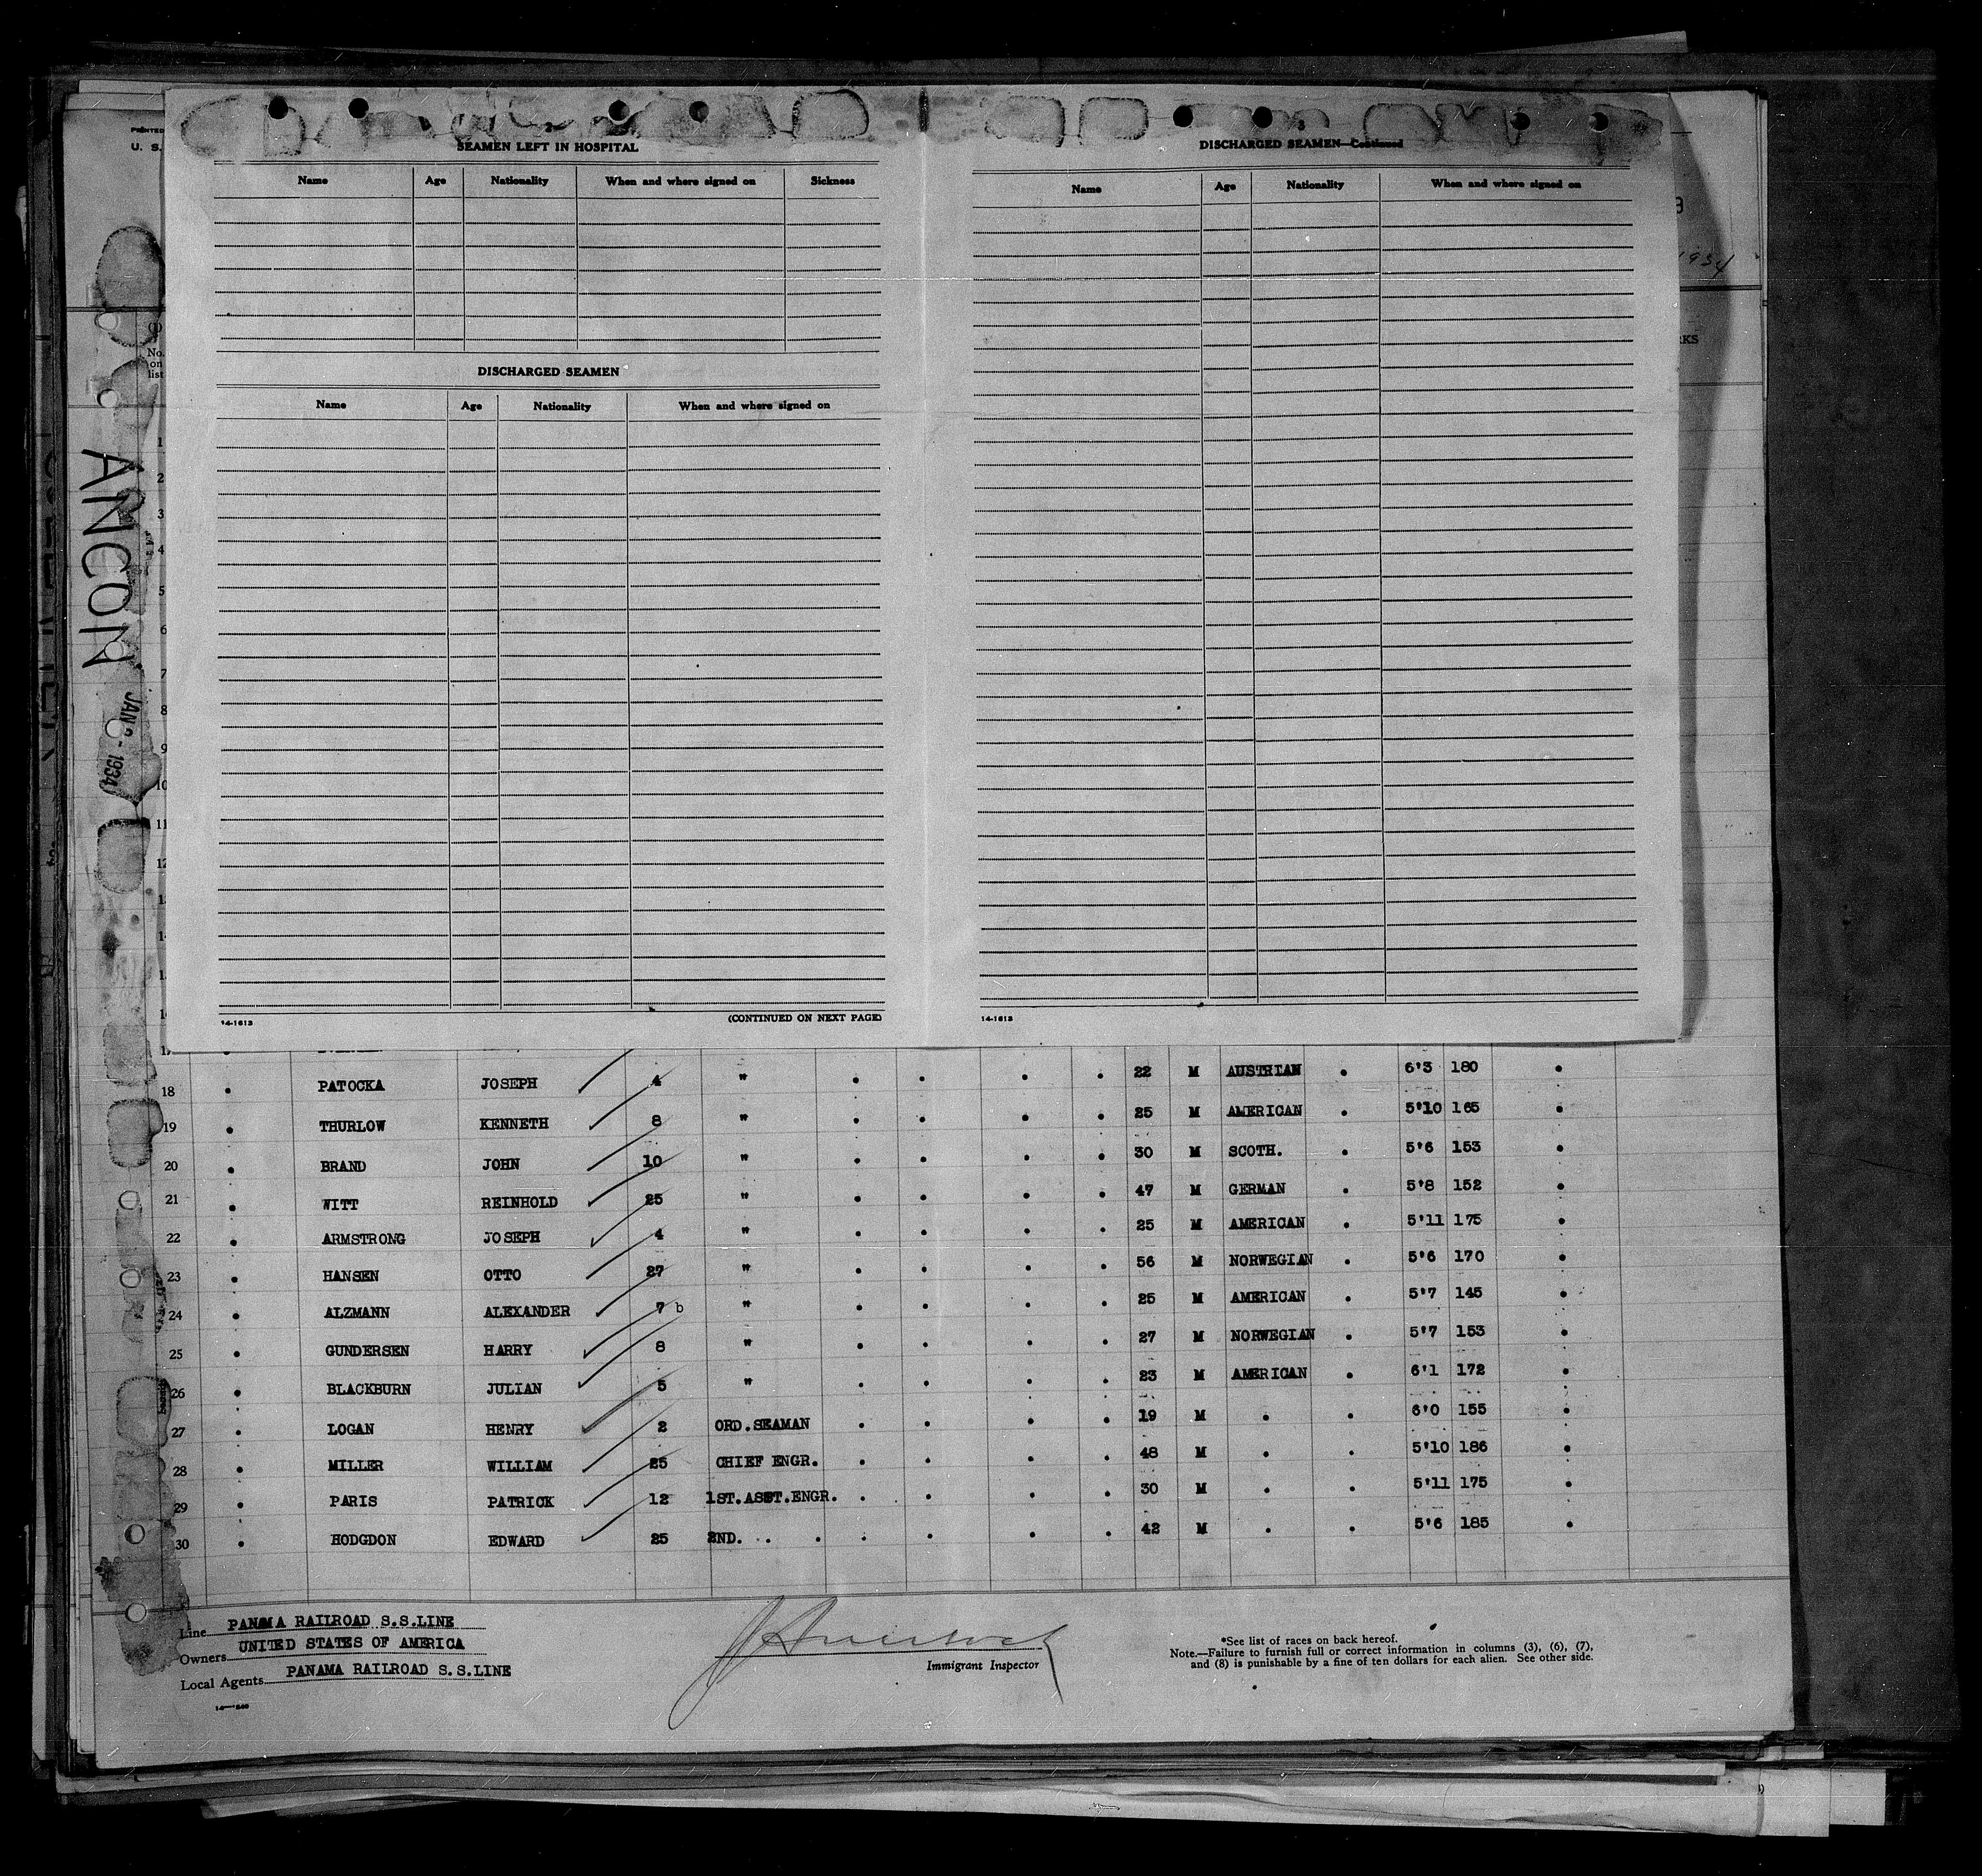 PRINTED
U. S.
SEAMEN LEFT IN HOSPITAL
Name Age Nationality When and where signed on Sickness
DISCHARGED SEAMEN
Name Age Nationality When and where signed on
(CONTINUED ON NEXT PAGE)
14-1613
DISCHARGED SEAMEN—Continued
Name Age Nationality When and where signed on
14-1613
1934
RKS
No.
on
list
ANCON
JAN - 1934
1
2
3
4
5
6
7
8
9
10
11
12
18 • PATOCKA JOSEPH 4 " • • • • 22 M AUSTRIAN • 6'3 180 •
19 • THURLOW KENNETH 8 " • • • • 25 M AMERICAN • 5'10 165 •
20 • BRAND JOHN 10 " • • • • 30 M SCOTH. • 5'6 153 •
21 • WITT REINHOLD 25 " • • • • 47 M GERMAN • 5'8 152 •
22 • ARMSTRONG JOSEPH 4 " • • • • 25 M AMERICAN • 5'11 175 •
23 • HANSEN OTTO 27 " • • • • 56 M NORWEGIAN • 5'6 170 •
24 • ALZMANN ALEXANDER 7 b " • • • • 25 M AMERICAN • 5'7 145 •
25 • GUNDERSEN HARRY 8 " • • • • 27 M NORWEGIAN • 5'7 153 •
26 • BLACKBURN JULIAN 5 " • • • • 23 M AMERICAN • 6'1 172 •
27 • LOGAN HENRY 2 ORD.SEAMAN • • • • 19 M • • 6'0 155 •
28 • MILLER WILLIAM 25 CHIEF ENGR. • • • • 48 M • • 5'10 186 •
29 • PARIS PATRICK 12 1ST.ASST.ENGR. • • • • 30 M • • 5'11 175 •
30 • HODGDON EDWARD 25 2ND. . • • • • • 42 M • • 5'6 185 •
Line PANAMA RAILROAD S.S.LINE
Owners UNITED STATES OF AMERICA
Local Agents PANAMA RAILROAD S.S.LINE
Immigrant Inspector
*See list of races on back hereof.
Note.—Failure to furnish full or correct information in columns (3), (6), (7),
and (8) is punishable by a fine of ten dollars for each alien. See other side.